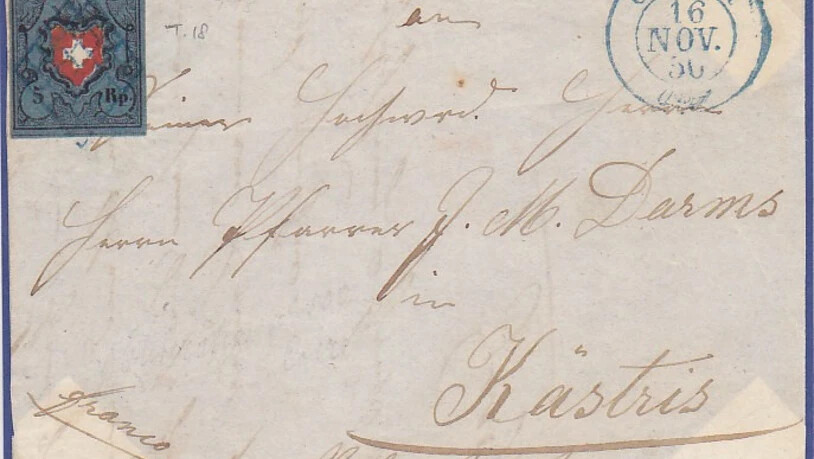 an
T. 18
16
NOV.
50
5 Rp.
Seiner Hochwrd. Herrn
Herrn Pfarrer J. M. Darms
in
Kästris
franco